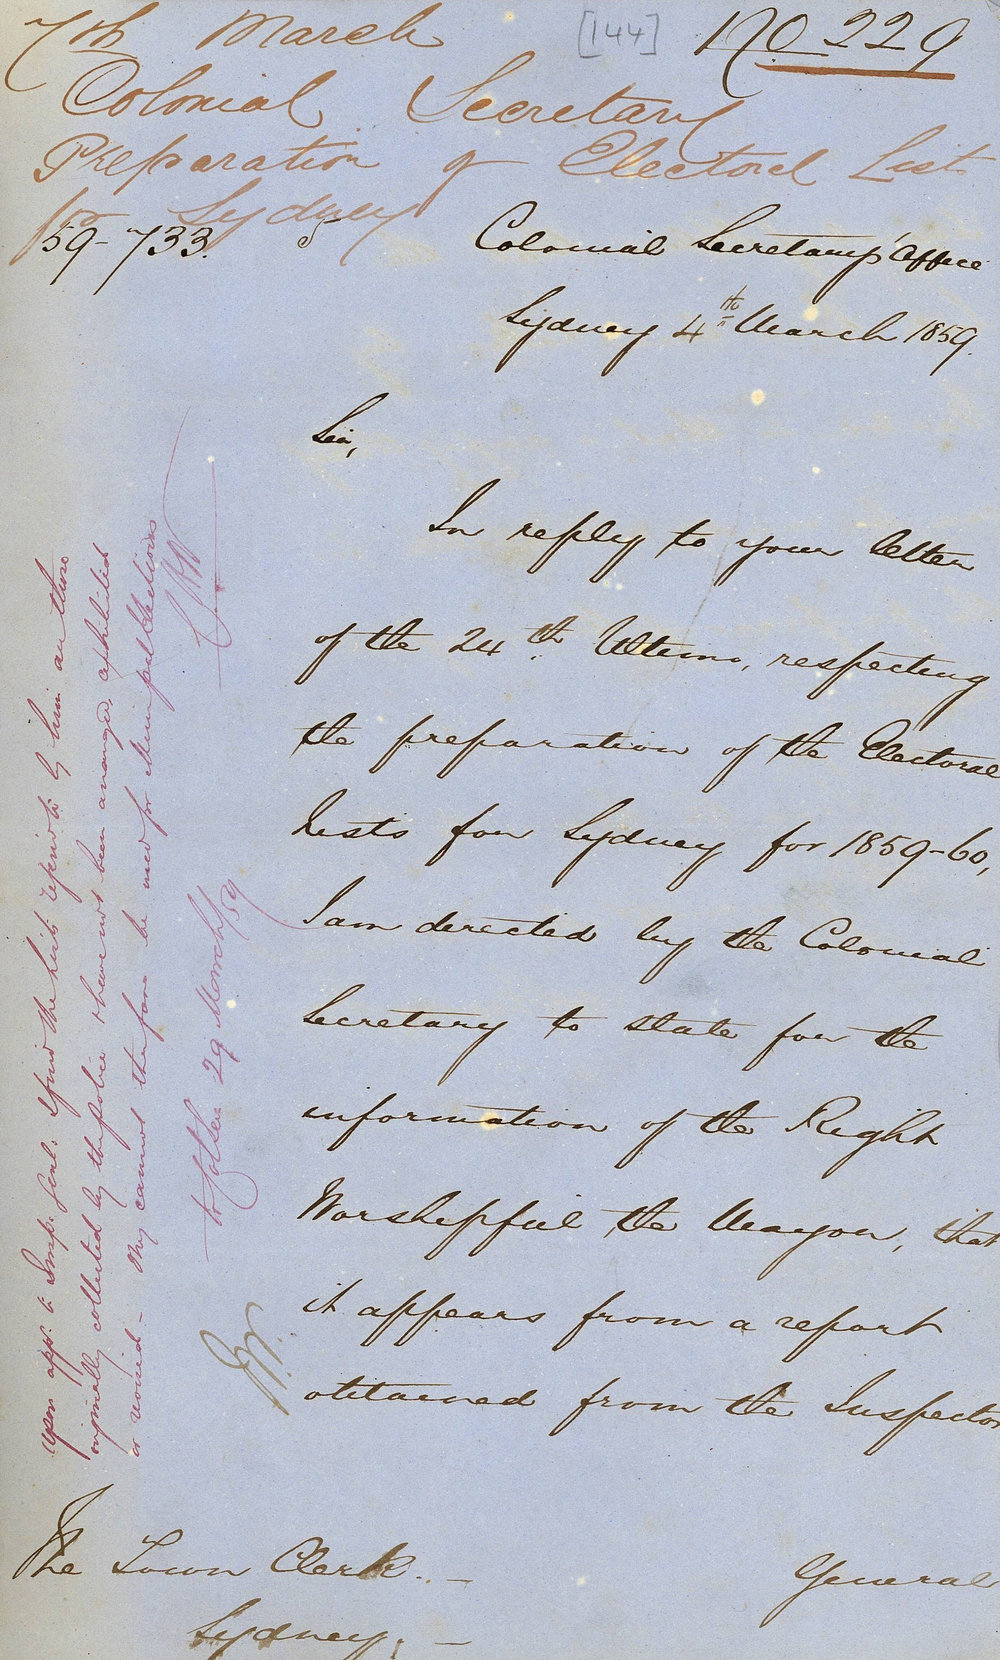 7th March [144] No 229
Colonial Secretary
Preparation of Electoral List
for Sydney
59-733. 5
Colonial Secretary's Office
Sydney 4th March 1859.
Sir,
In reply to your letter
of the 24th Ultimo, respecting
the preparation of the Electoral
Lists for Sydney for 1859-60,
I am directed by the Colonial
Secretary to state for the
information of the Right
Worshipful the Mayor, that
it appears from a report
obtained from the Inspector
General
The Town Clerk. _
Sydney. _
upon appn. to Insp. Genl. I find the lists referred to by him are those
originally collected by the police & have not been arranged, exhibited
or revised - They cannot therefore be used for Municipal Elections
29 March/59